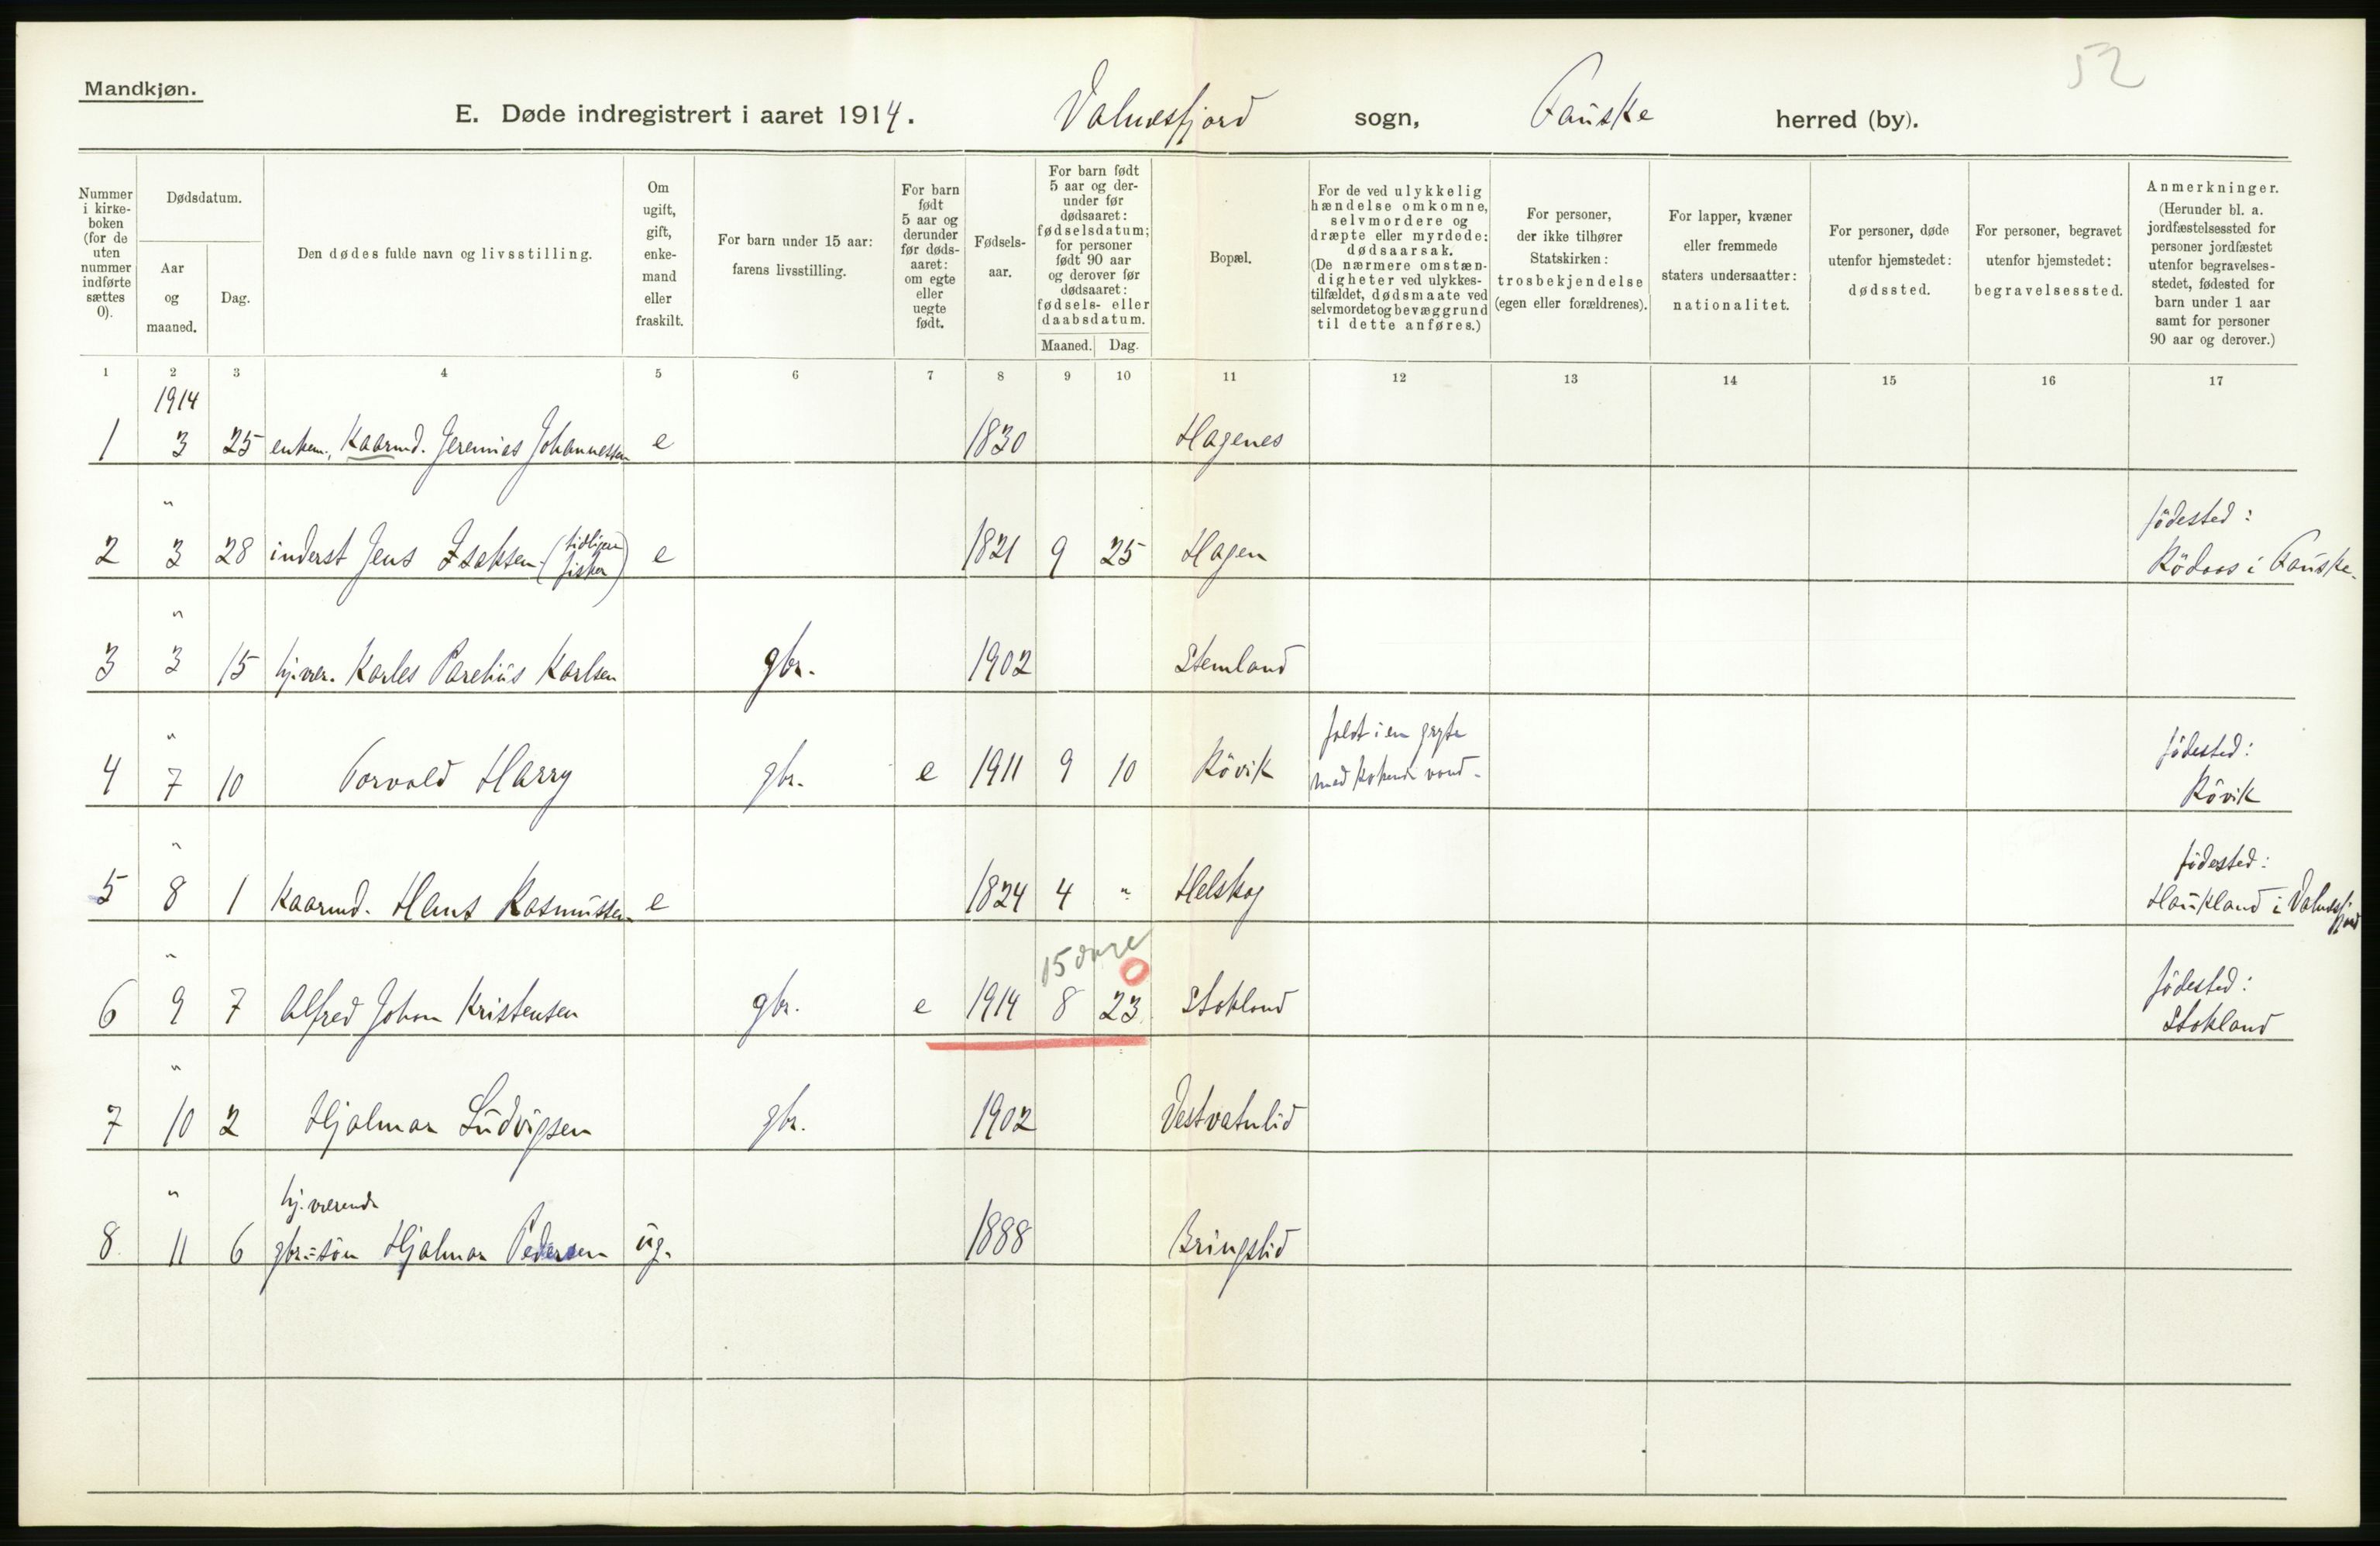 52
Mandkjøn.
E. Døde indregistrert i aaret 1914. Valnesfjord sogn, Fauske herred (by).
Nummer i kirke-boken (for de uten nummer indførte sættes 0).
Dødsdatum.
Aar og maaned.
Dag.
Den dødes fulde navn og livsstilling.
Om ugift, gift, enke-mand eller fraskilt.
For barn under 15 aar: farens livsstilling.
For barn født 5 aar og derunder før døds-aaret: om egte eller uegte født.
Fødsels-aar.
For barn født 5 aar og der-under før dødsaaret: fødselsdatum; for personer født 90 aar og derover før dødsaaret: fødsels- eller daabsdatum.
Maaned. Dag.
Bopæl.
For de ved ulykkelig hændelse omkomne, selvmordere og dræpte eller myrdede: dødsaarsak. (De nærmere omstæn-digheter ved ulykkes-tilfældet, dødsmaate ved selvmordet og bevæggrund til dette anføres.)
For personer, der ikke tilhører Statskirken: trosbekjendelse (egen eller forældrenes).
For lapper, kvæner eller fremmede staters undersaatter: nationalitet.
For personer, døde utenfor hjemstedet: dødssted.
For personer, begravet utenfor hjemstedet: begravelsessted.
Anmerkninger. (Herunder bl. a. jordfæstelsessted for personer jordfæstet utenfor begravelses-stedet, fødested for barn under 1 aar samt for personer 90 aar og derover.)
1 2 3 4 5 6 7 8 9 10 11 12 13 14 15 16 17
1914
1 3 25 enkem., Kaarmd. Jeremias Johannessen e 1830 Hagenes
" födested:
2 3 28 inderst Jens Isaksen (tidligere fisker) e 1821 9 25 Hagen Rödaas i Fauske.
"
3 3 15 hj.vær. Karles Parelius Karlsen gbr. 1902 Stemland
" faldt i en gryte födested:
4 7 10 Torvald Harry gbr. e 1911 9 10 Rövik med kokende vand. Rövik
" födested:
5 8 1 Kaarmd. Hans Rasmussen e 1824 4 " Helskog Haukland i Valnesfjord
" 15 dage 0 födested:
6 9 7 Alfred Johan Kristensen gbr. e 1914 8 23 Stokland Stokland
"
7 10 2 Hjalmar Ludvigsen gbr. 1902 Vestvatnlid
" hj.værende
8 11 6 gbr.=sön Hjalmar Pedersen ug. 1888 Bringslid